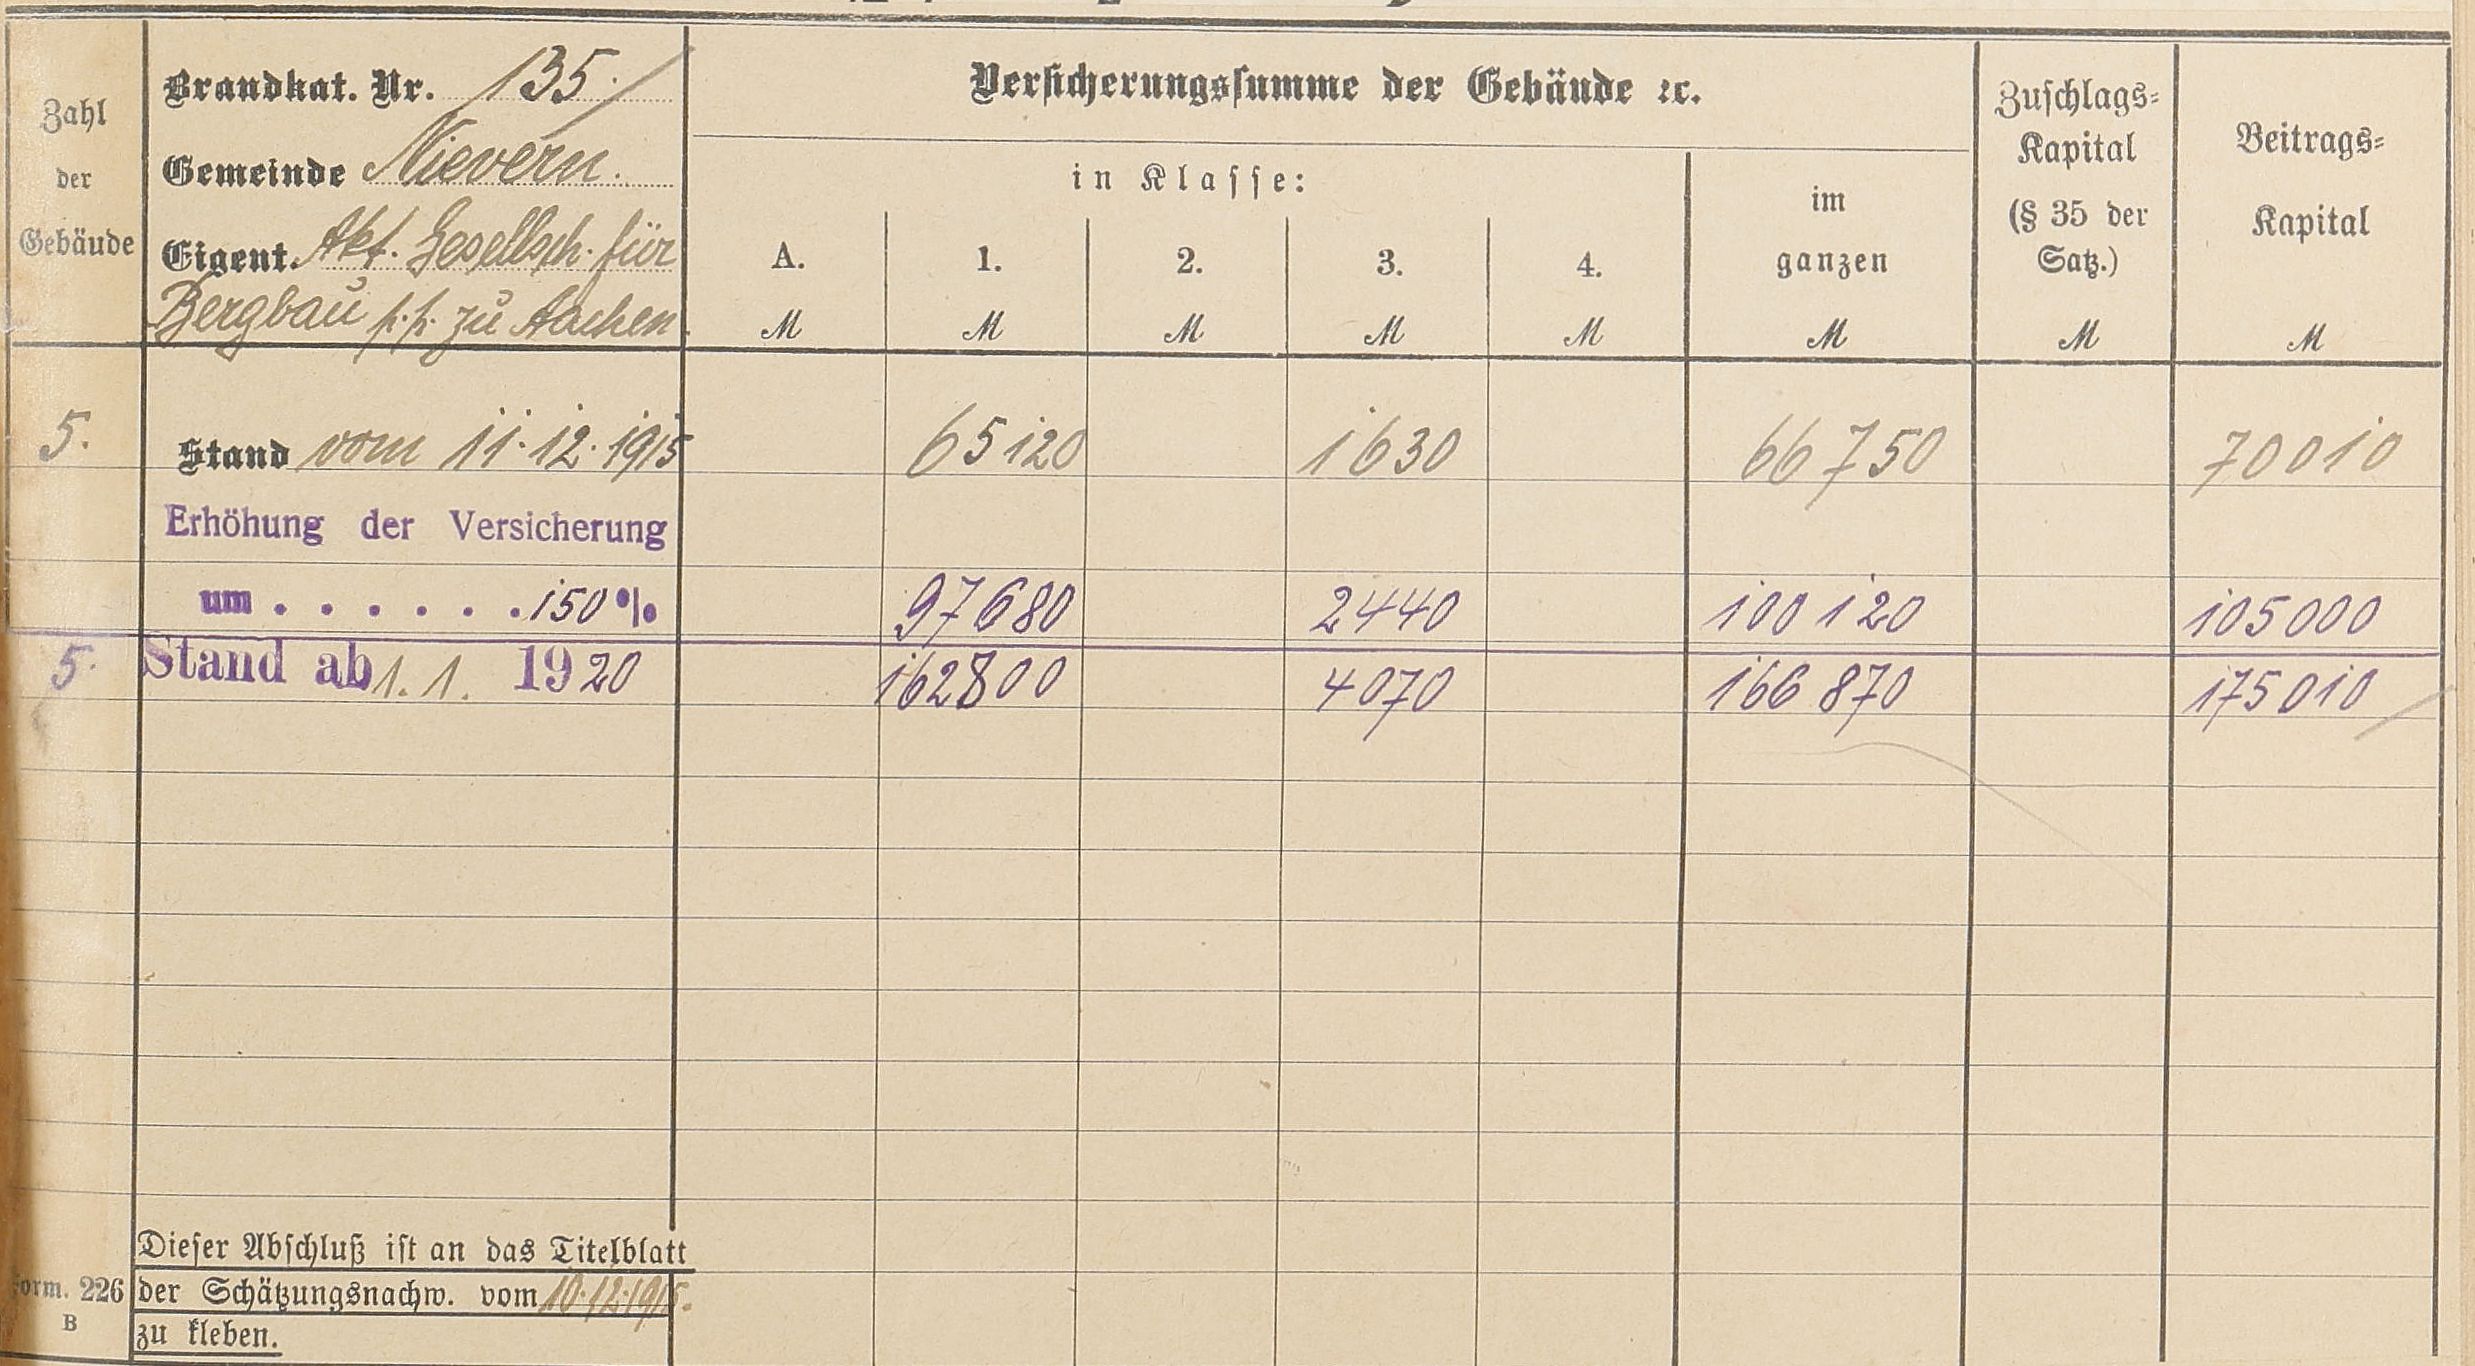 Zahl
der
Gebäude
Brandkat. Nr. 135.
Gemeinde Nievern.
Eigent. Akt. Gesellsch. für
Bergbau p.p. zu Aachen.
Versicherungssumme der Gebäude ꝛc.
in Klasse:
A. 1. 2. 3. 4.
im
ganzen
M M M M M M
Zuschlags-
Kapital
(§ 35 der
Satz.)
M
Beitrags-
Kapital
M
5. Stand vom 11.12.1915 65120 1630 66750 70010
Erhöhung der Versicherung
um . . . . . . . 150% 97680 2440 100120 105000
5. Stand ab 1.1. 1920 162800 4070 166870 175010
Dieser Abschluß ist an das Titelblatt
der Schätzungsnachw. vom 10.12.1915.
zu kleben.
Form. 226
B